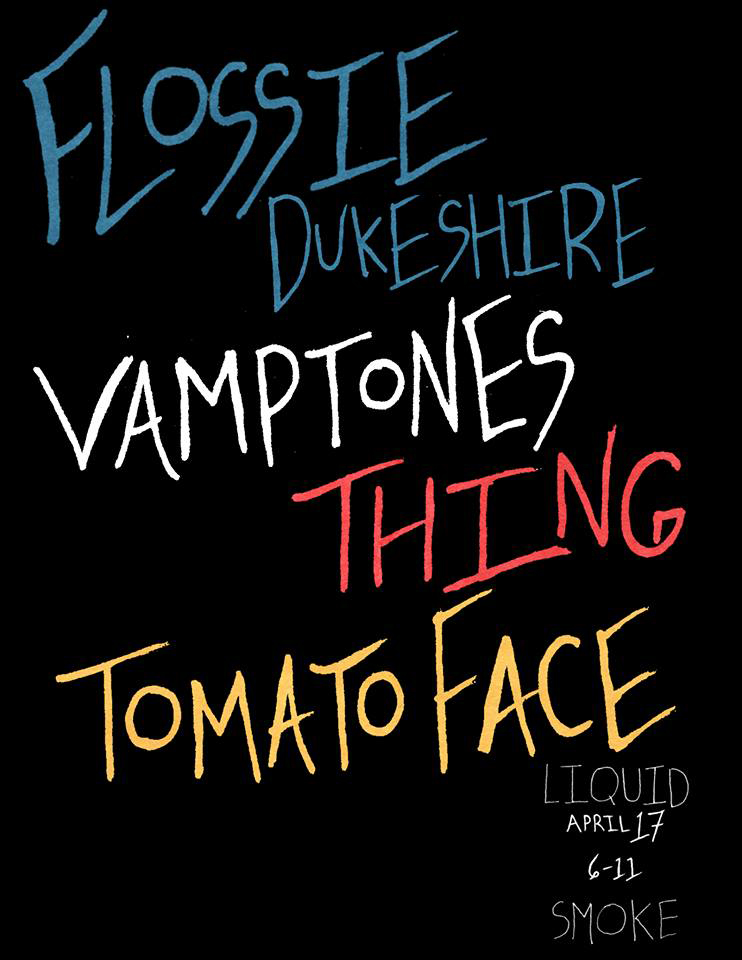 FLOSSIE
DUKESHIRE
VAMPTONES
THING
TOMATO FACE
LIQUID
APRIL 17
6-11
SMOKE